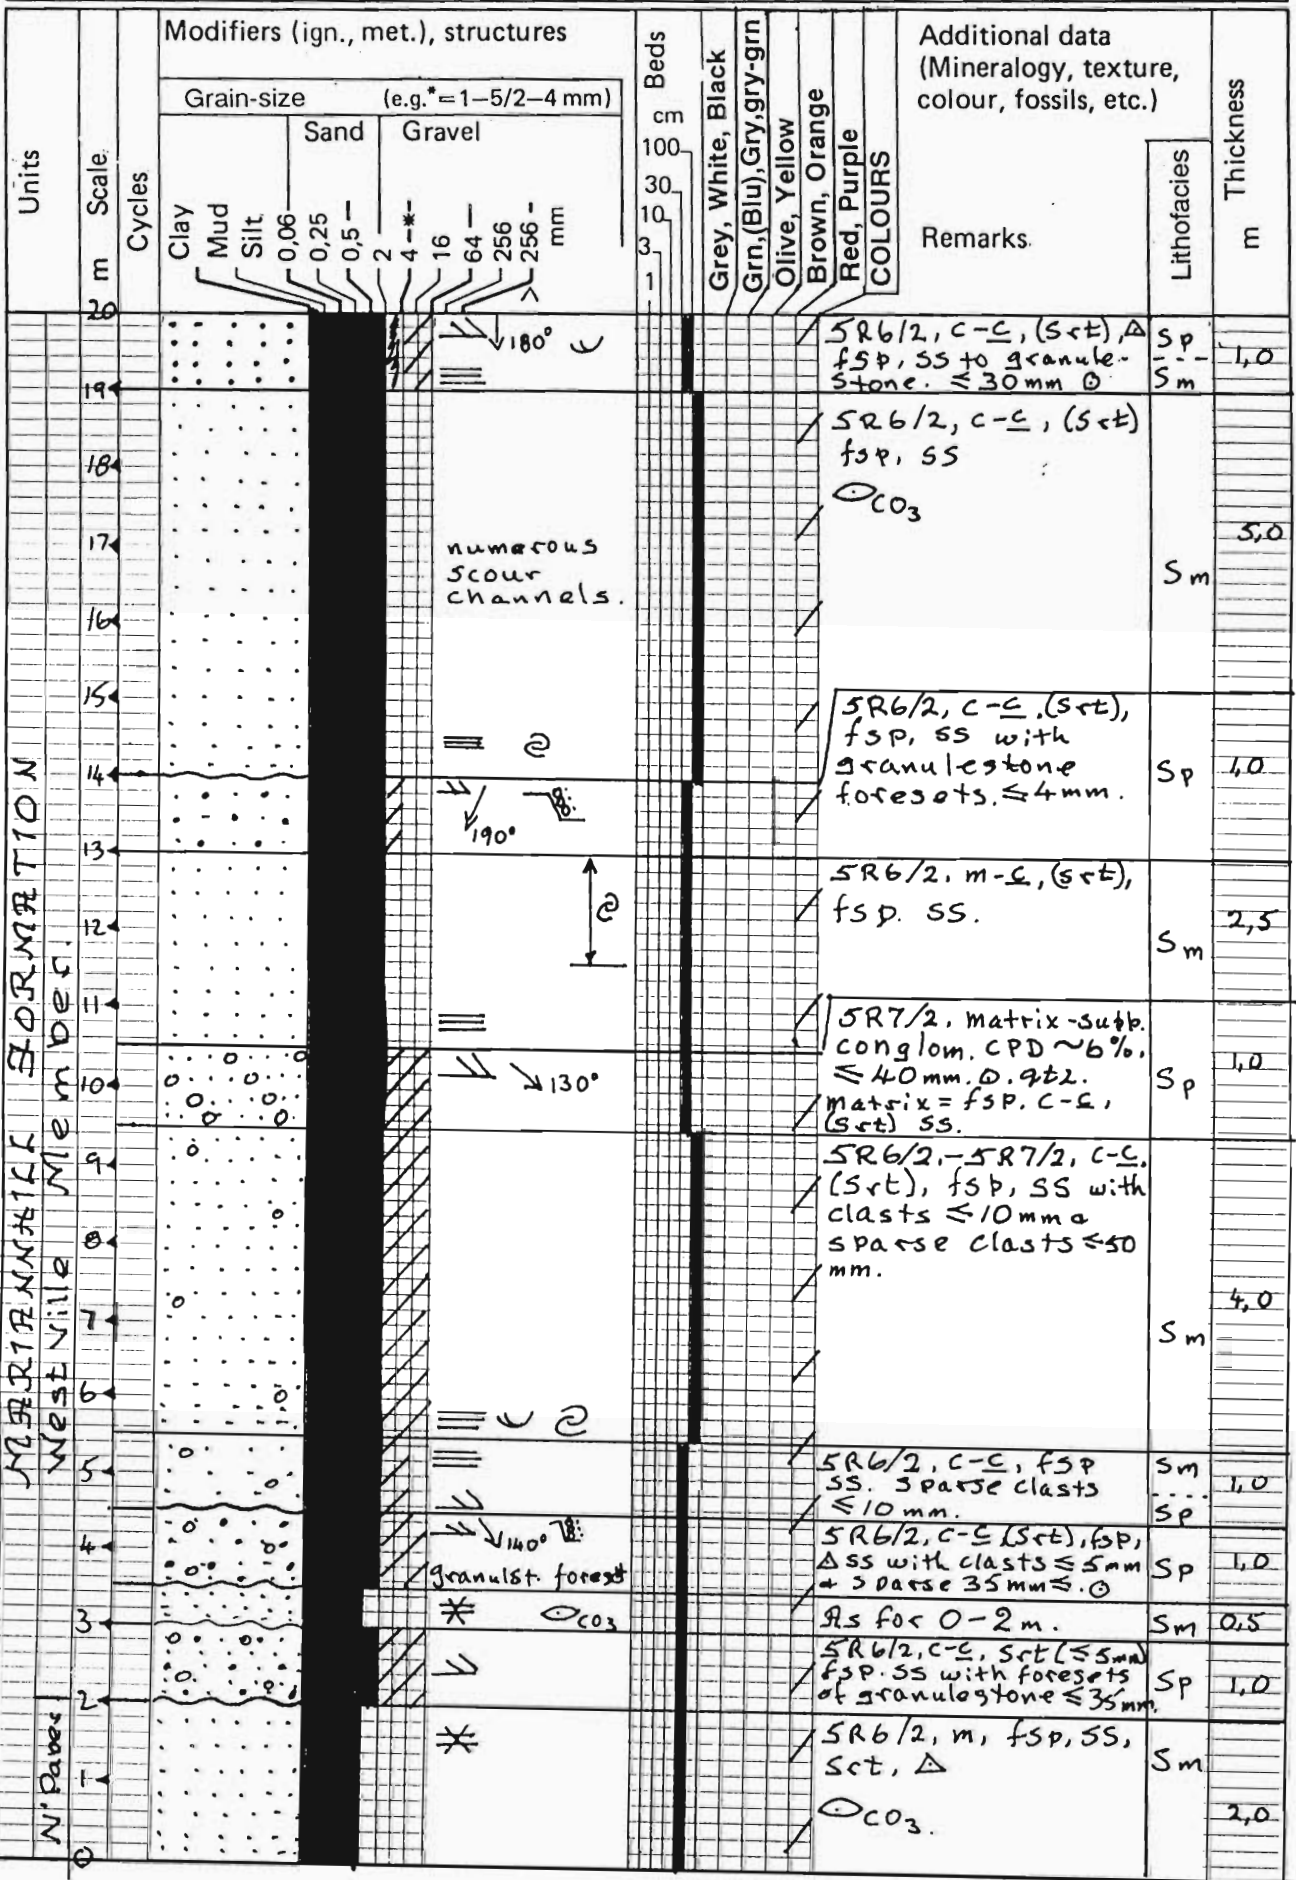 Units
Scale
m
Cycles
Modifiers (ign., met.), structures
Grain-size
(e.g.*=1–5/2–4 mm)
Sand
Gravel
Clay
Mud
Silt
0,06
0,25
0,5
2
4 –*–
16
64
256
>256
mm
Beds
cm
100
30
10
3
1
Grey, White, Black
Grn,(Blu),Gry,gry-grn
Olive, Yellow
Brown, Orange
Red, Purple
COLOURS
Additional data
(Mineralogy, texture,
colour, fossils, etc.)
Remarks.
Lithofacies
Thickness
m
MARIANNHILL FORMATION
Westville Member.
20
19
18
17
16
15
14
13
12
11
10
9
8
7
6
5
4
3
2
1
0
180°
5R6/2, c-c, (Srt), Δ
fsp, SS to granule-
stone. ≤30mm ⊙
Sp
Sm
1,0
5R6/2, c-c, (Srt)
fsp, SS
CO3
numerous
scour
channels.
Sm
5,0
5R6/2, c-c, (Srt),
fsp, SS with
granulestone
foresets. ≤4mm.
190°
Sp
1,0
5R6/2, m-c, (srt),
fsp. SS.
Sm
2,5
5R7/2, matrix-supp.
conglom. CPD ~6%.
≤40mm. qtz.
matrix = fsp. c-c,
(Srt) SS.
130°
Sp
1,0
5R6/2,-5R7/2, c-c,
(Srt), fsp, SS with
clasts ≤10mm &
sparse clasts ≤50
mm.
Sm
4,0
5R6/2, c-c, fsp
SS. Sparse clasts
≤10 mm.
Sm
Sp
1,0
140°
granulst. forest
5R6/2, c-c (Srt), fsp,
Δ SS with clasts ≤5mm
& sparse 35mm≤. ⊙
Sp
1,0
CO3
As for 0-2m.
Sm
0,5
5R6/2, c-c, Srt (≤5mm)
fsp. SS with foresets
of granulestone ≤35mm.
Sp
1,0
5R6/2, m, fsp, SS,
Srt, Δ
CO3.
Sm
2,0